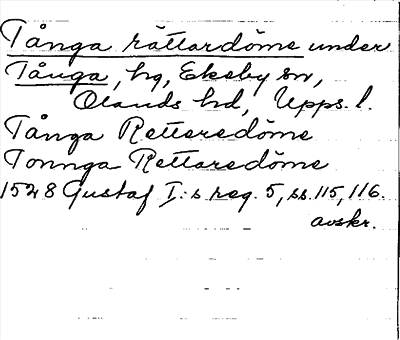 Tånga rättardöme under
Tånga, hg, Ekeby sn,
Olands hd, Upps. l.
Tånga Rettaredöme
Tonnga Rettaredöme
1528 Gustaf I:s reg. 5, ss. 115, 116.
avskr.